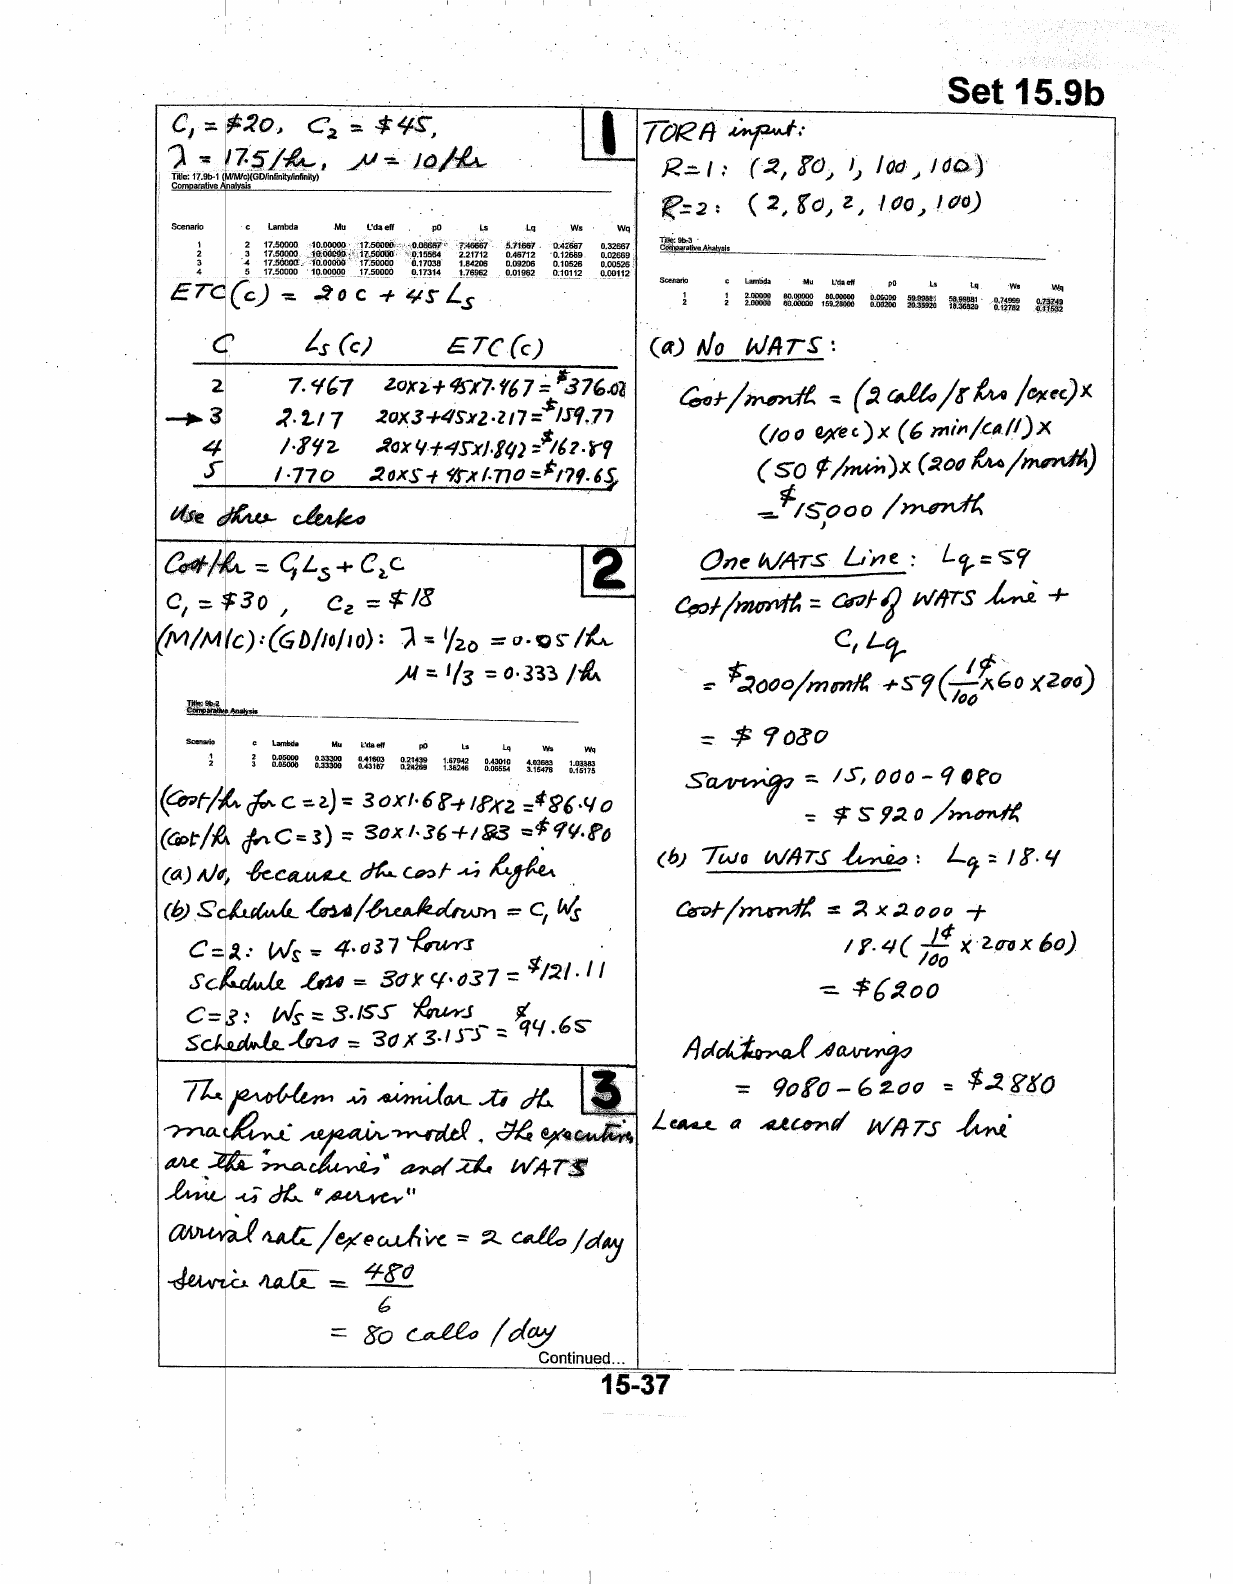 Set 15.9b
C₁ = $20, C₂ = $45,
λ = 17.5/hr, μ = 10/hr
1
Title: 17.9b-1 (M/M/c)(GD/infinity/infinity)
Comparative Analysis
Scenario c Lambda Mu L'da eff p0 Ls Lq Ws Wq
1 2 17.50000 10.00000 17.50000 0.06667 7.46667 5.71667 0.42667 0.32667
2 3 17.50000 10.00000 17.50000 0.15564 2.21712 0.46712 0.12669 0.02669
3 4 17.50000 10.00000 17.50000 0.17038 1.84206 0.09206 0.10526 0.00526
4 5 17.50000 10.00000 17.50000 0.17314 1.76962 0.01962 0.10112 0.00112
ETC(c) = 20c + 45 Ls
C Ls(c) ETC(c)
2 7.467 20x2+45x7.467 = $376.02
→ 3 2.217 20x3+45x2.217 = $159.77
4 1.842 20x4+45x1.842 = $162.89
5 1.770 20x5+45x1.770 = $179.65
Use three clerks
2
Cost/hr = C₁Ls + C₂c
C₁ = $30, C₂ = $18
(M/M/c):(GD/10/10): λ = 1/20 = 0.05/hr
μ = 1/3 = 0.333/hr
Title: 9b-2
Comparative Analysis
Scenario c Lambda Mu L'da eff p0 Ls Lq Ws Wq
1 2 0.05000 0.33300 0.41603 0.21439 1.67942 0.43010 4.03683 1.03383
2 3 0.05000 0.33300 0.43187 0.24269 1.36246 0.06554 3.15476 0.15175
(Cost/hr for c = 2) = 30x1.68+18x2 = $86.40
(Cost/hr for C = 3) = 30x1.36+183 = $94.80
(a) No, because the cost is higher
(b) Schedule loss/breakdown = C₁ Ws
C = 2: Ws = 4.037 hours
Schedule loss = 30 x 4.037 = $121.11
C = 3: Ws = 3.155 hours
Schedule loss = 30 x 3.155 = $94.65
3
The problem is similar to the
machine repair model. The executives
are the "machines" and the WATS
line is the "server"
arrival rate/executive = 2 calls/day
service rate = 480/6
= 80 calls/day
Continued...
TORA input:
R=1: (2, 80, 1, 100, 100)
R=2: (2, 80, 2, 100, 100)
Title: 9b-3
Comparative Analysis
Scenario c Lambda Mu L'da eff p0 Ls Lq Ws Wq
1 1 2.00000 80.00000 80.00000 59.99881 58.99881 0.74999 0.73749
2 2 2.00000 80.00000 159.28000 20.35920 18.36820 0.12782 0.11532
(a) No WATS:
Cost/month = (2 calls/8 hrs/exec)x
(100 exec)x(6 min/call)x
(50 ¢/min)x(200 hrs/month)
= $15,000/month
One WATS Line: Lq = 59
Cost/month = cost of WATS line +
C₁Lq
= $2000/month + 59(1¢/100 x60 x200)
= $9080
Savings = 15,000 - 9080
= $5920/month
(b) Two WATS lines: Lq = 18.4
Cost/month = 2 x 2000 +
18.4(1¢/100 x 200 x 60)
= $6200
Additional savings
= 9080 - 6200 = $2880
Lease a second WATS line
15-37